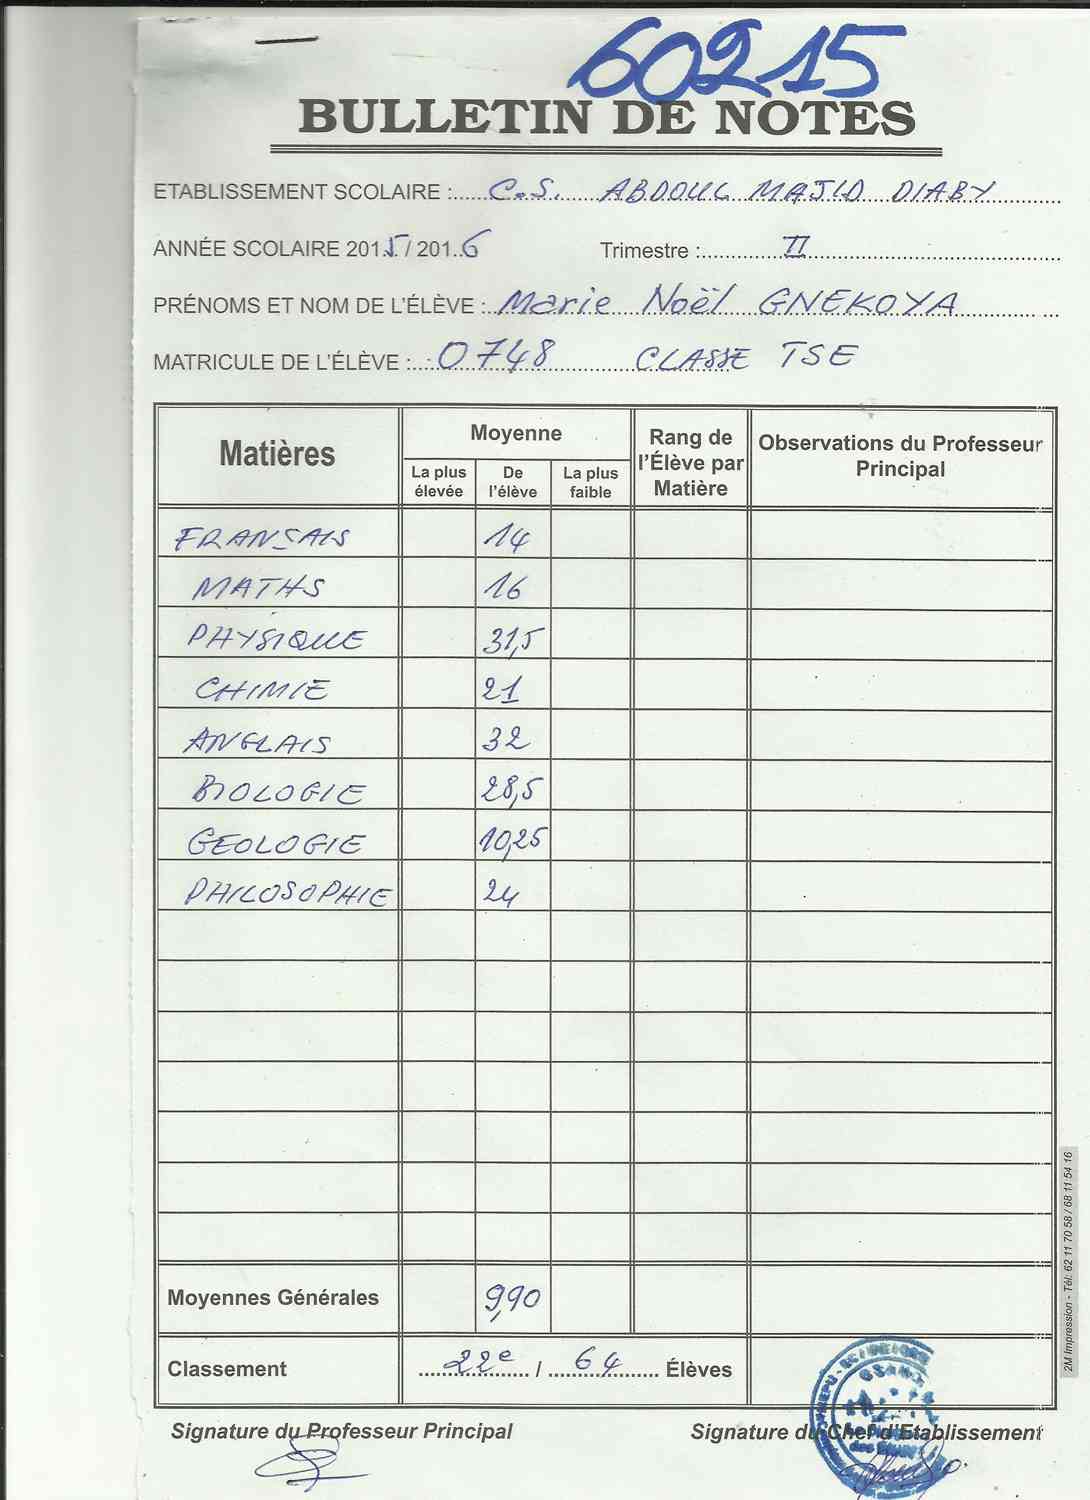 60215
BULLETIN DE NOTES
ETABLISSEMENT SCOLAIRE : C.S. ABDOUL MAJID DIABY
ANNÉE SCOLAIRE 2015 / 2016 Trimestre : II
PRÉNOMS ET NOM DE L'ÉLÈVE : Marie Noël GNEKOYA
MATRICULE DE L'ÉLÈVE : 0748 CLASSE TSE
Matières Moyenne Rang de l'Élève par Matière Observations du Professeur Principal
La plus élevée De l'élève La plus faible
FRANÇAIS 14
MATHS 16
PHYSIQUE 31,5
CHIMIE 21
ANGLAIS 32
BIOLOGIE 28,5
GEOLOGIE 10,25
PHILOSOPHIE 24
Moyennes Générales 9,90
Classement 22e / 64 Élèves
Signature du Professeur Principal Signature du Chef d'Etablissement
2M Impression - Tél: 62 11 70 58 / 68 11 54 16